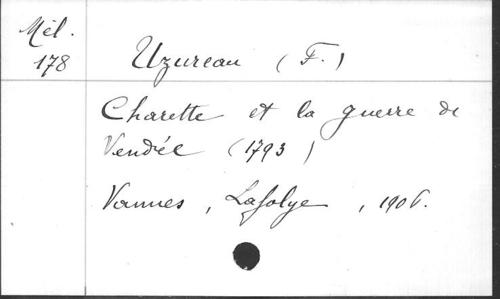 Mél.
178
Uzureau (F.)
Charette et la guerre de
Vendée (1793)
Vannes, Lafolye, 1906.